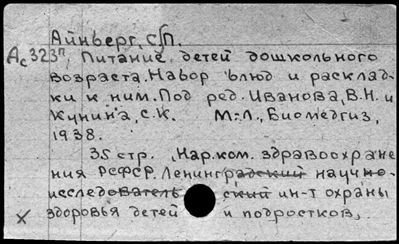 Айнберг, С.П.
Ас323п, Питание детей дошкольного
возраста. Набор блюд и расклад-
ки к ним. Под ред. Иванова, В.Н. и
Кунина, С.К. М.-Л., Биомедгиз,
1938.
35 стр. (Нар.ком. здравоохране-
ния РСФСР. Ленинградский научно-
исследовательский ин-т охраны
х здоровья детей и подростков,